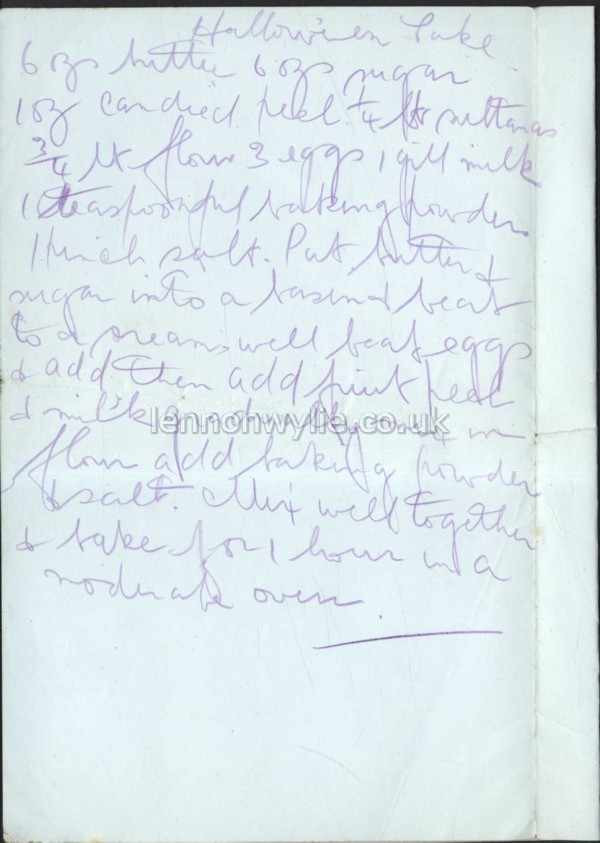 Hallowe'en Cake
6 ozs butter 6 ozs sugar
1 oz candied peel ¼ lb sultanas
¾ lb flour 3 eggs 1 gill milk
1 teaspoonful baking powder
1 pinch salt. Put butter &
sugar into a basin & beat
to a cream well beat eggs
& add then add fruit peel
& milk mix in
lennonwylie.co.uk
flour add baking powder
& salt. Mix well together
& bake for 1 hour in a
moderate oven